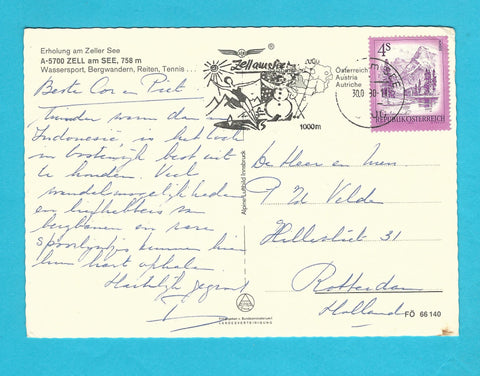 Erholung am Zeller See
A-5700 ZELL am SEE, 758 m
Wassersport, Bergwandern, Reiten, Tennis . . .
Beste Cor en Piet!
Minder warm dan in
Indonesië, is het toch
in Oostenrijk best uit
te houden. Veel
wandelmogelijkheden
en liefhebbers van
bergbanen en
spoorlijntjes kunnen hier
hun hart ophalen.
Hartelijk gegroet
Alpine Luftbild Innsbruck
Zell am See
2000
1000m
Österreich
Austria
Autriche
4S
REPUBLIK ÖSTERREICH
De Heer en Mevr.
P v/d Velden
31
Rotterdam
Holland
FÖ 66 140